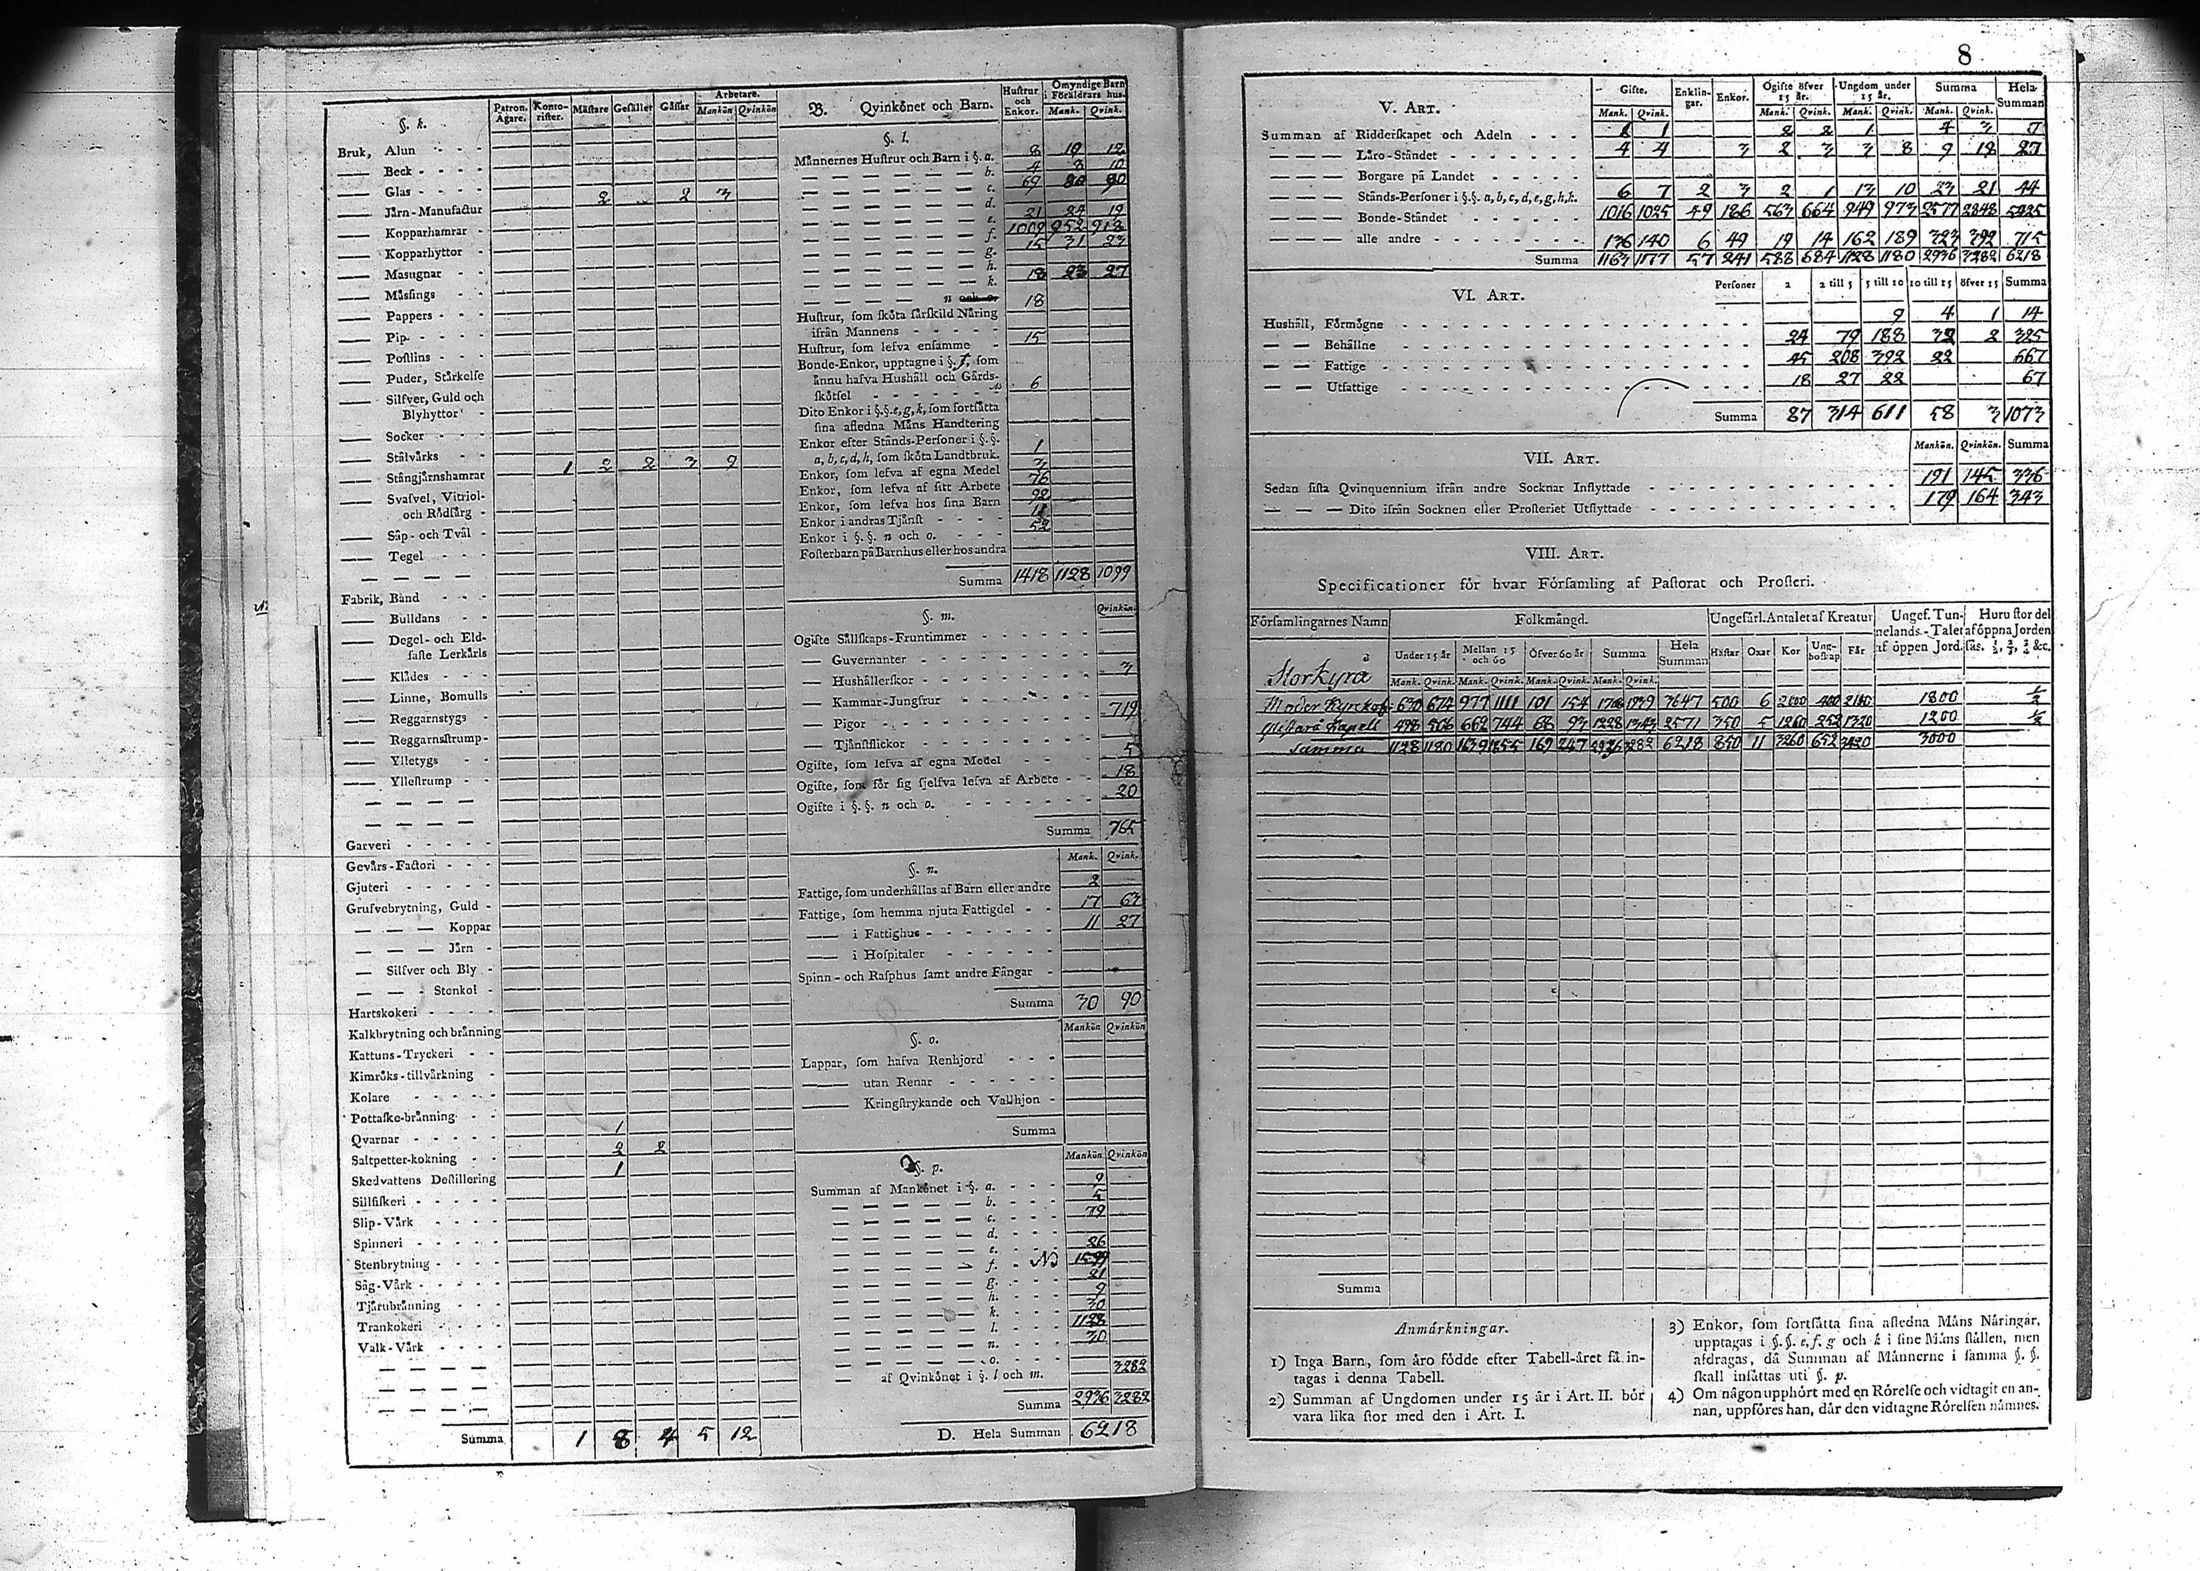 8
§. k.
Patron. Ägare.
Konto-rister.
Mästare
Gesäller
Gåssar
Arbetare.
Mankön
Qvinkön
Bruk, Alun
— Beck
— Glas 2 2 3
— Järn-Manufactur
— Kopparhamrar
— Kopparhyttor
— Masugnar
— Mässings
— Pappers
— Pip
— Postlins
— Puder, Stärkelse
— Silfver, Guld och
Blyhyttor
— Socker
— Stålvärks
— Stångjärnshamrar 1 2 2 3 9
— Svafvel, Vitriol-
och Rödfärg
— Såp- och Tvål
— Tegel
Fabrik, Band
— Bulldans
— Degel- och Eld-
faste Lerkärls
— Klädes
— Linne, Bomulls
— Reggarnstygs
— Reggarnsstrump
— Ylletygs
— Yllestrump
Garveri
Gevärs-Factori
Gjuteri
Grufvebrytning, Guld
— — — Koppar
— — — Järn
— Silfver och Bly
— — Stenkol
Hartskokeri
Kalkbrytning och bränning
Kattuns-Tryckeri
Kimröks-tillvärkning
Kolare
Pottaske-bränning
Qvarnar 1
Saltpetter-kokning 2 2
Skedvattens Destillering 1
Sillfiskeri
Slip-Värk
Spinneri
Stenbrytning
Såg-Värk
Tjärubränning
Trankokeri
Valk-Värk
Summa 1 8 4 5 12
B. Qvinkönet och Barn.
Hustrur och Enkor.
Omyndige Barn i Föräldrars hus.
Mank. Qvink.
§. l.
Männernes Hustrur och Barn i §. a. 8 19 12
b. 4 8 10
c. 69 80 90
d.
e. 21 24 19
f. 1009 952 918
g. 15 31 23
h.
k. 18 23 27
n och o. 18
Hustrur, som sköta särskild Näring
ifrån Mannens
Hustrur, som lefva ensamme 15
Bonde-Enkor, upptagne i §. f, som
ännu hafva Hushåll och Gårds-
skötsel 6
Dito Enkor i §.§. e, g, k, som fortsätta
sina afledna Mäns Handtering
Enkor efter Stånds-Personer i §.§.
a, b, c, d, h, som sköta Landtbruk. 1
Enkor, som lefva af egna Medel 3
Enkor, som lefva af sitt Arbete 76
Enkor, som lefva hos sina Barn 92
Enkor i andras Tjänst 11
Enkor i §.§. n och o. 52
Fosterbarn på Barnhus eller hos andra
Summa 1418 1128 1099
§. m. Qvinkön.
Ogifte Sällskaps-Fruntimmer
— Guvernanter
— Hushållerskor 3
— Kammar-Jungfrur
— Pigor 719
— Tjänstflickor
Ogifte, som lefva af egna Medel 5
Ogifte, som för sig sjelfva lefva af Arbete 18
Ogifte i §.§. n och o. 20
Summa 765
§. n. Mank. Qvink.
Fattige, som underhållas af Barn eller andre 2
Fattige, som hemma njuta Fattigdel 17 63
— i Fattighus 11 27
— i Hospitaler
Spinn- och Rasphus samt andre Fångar
Summa 30 90
§. o. Mankön Qvinkön
Lappar, som hafva Renhjord
— utan Renar
— Kringstrykande och Vallhjon
Summa
§. p. Mankön Qvinkön
Summan af Mankönet i §. a. 9
b. 5
c. 79
d.
e. 26
f. NB 1599
g. 21
h. 9
k. 30
l. 1128
n. 30
o.
— af Qvinkönet i §. l och m. 3282
Summa 2936 3282
D. Hela Summan 6218
V. Art.
Gifte. Enklin-gar. Enkor. Ogifte öfver 15 år. Ungdom under 15 år. Summa Hela Summan
Mank. Qvink. Mank. Qvink. Mank. Qvink. Mank. Qvink.
Summan af Ridderskapet och Adeln 1 1 2 2 1 4 3 7
— — — Läro-Ståndet 4 4 3 2 3 3 8 9 18 27
— — — Borgare på Landet
— — — Stånds-Personer i §.§. a, b, c, d, e, g, h, k. 6 7 2 3 2 1 13 10 23 21 44
— — — Bonde-Ståndet 1016 1025 49 186 563 664 949 973 2577 2848 5425
— — — alle andre 136 140 6 49 19 14 162 189 323 392 715
Summa 1163 1177 57 241 588 684 1128 1180 2936 3282 6218
VI. Art.
Personer 2 2 till 5 5 till 10 10 till 15 öfver 15 Summa
Hushåll, Förmögne 9 4 1 14
— — Behållne 24 79 188 32 2 325
— — Fattige 45 208 392 22 667
— — Utfattige 18 27 22 67
Summa 87 314 611 58 3 1073
VII. Art.
Mankön. Qvinkön. Summa
Sedan sista Qvinquennium ifrån andre Socknar Inflyttade 191 145 336
— — — Dito ifrån Socknen eller Prosteriet Utflyttade 179 164 343
VIII. Art.
Specificationer för hvar Församling af Pastorat och Prosteri.
Församlingarnes Namn
Folkmängd.
Ungefärl. Antalet af Kreatur
Ungef. Tun-nelands-Talet af öppen Jord.
Huru stor del af öppna Jorden sås. ½, ⅔, ¾ &c.
Under 15 år Mellan 15 och 60 Öfver 60 år Summa Hela Summan Hästar Oxar Kor Ung-boskap Får
Mank. Qvink. Mank. Qvink. Mank. Qvink. Mank. Qvink.
Storkyrå
Moder Kyrckan 630 674 977 1111 101 154 1708 1939 3647 500 6 2000 400 2100 1800 ½
Ylistarå Kapell 498 506 662 744 68 93 1228 1343 2571 350 5 1260 252 1320 1200 ½
Summa 1128 1180 1639 1855 169 247 2936 3282 6218 850 11 3260 652 3420 3000
Summa
Anmärkningar.
1) Inga Barn, som äro födde efter Tabell-året få in-
tagas i denna Tabell.
2) Summan af Ungdomen under 15 år i Art. II. bör
vara lika stor med den i Art. I.
3) Enkor, som fortsätta sina afledna Mäns Näringar,
upptagas i §.§. e, f, g och k i sine Mäns ställen, men
afdragas, då Summan af Männerne i samma §.§.
skall insättas uti §. p.
4) Om någon upphört med en Rörelse och vidtagit en an-
nan, uppföres han, där den vidtagne Rörelsen nämnes.